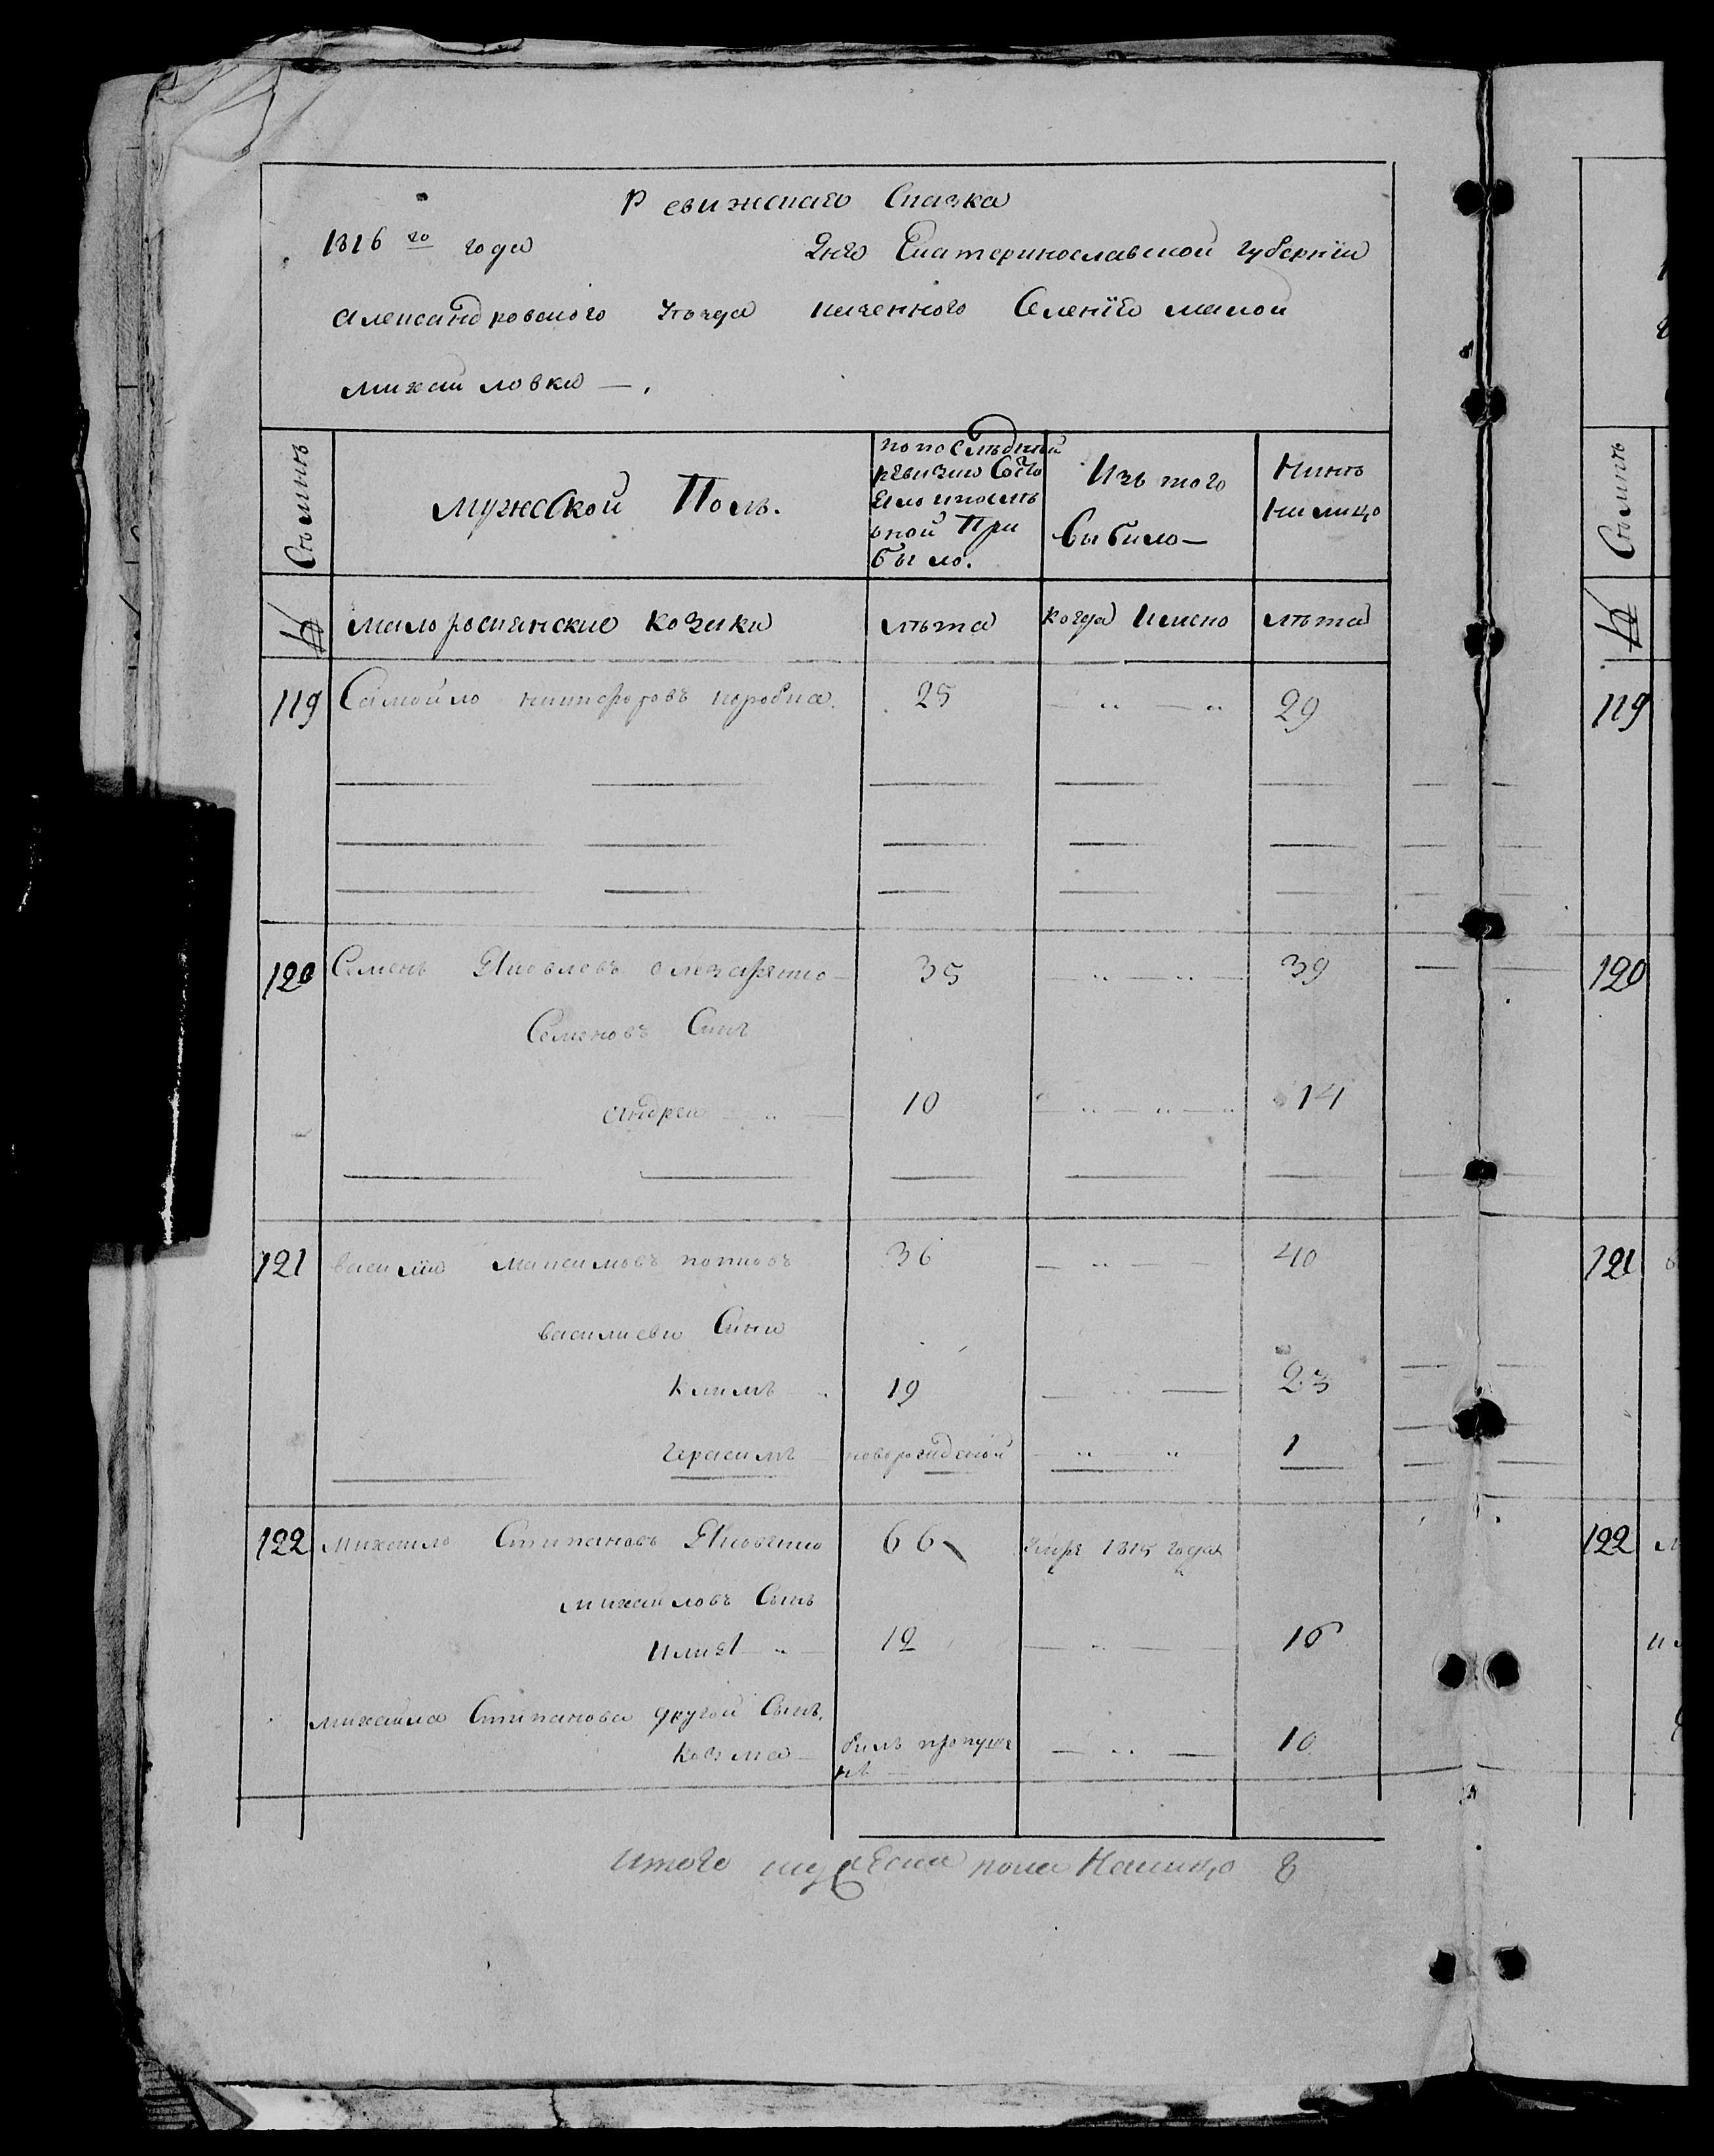 Ревижская Сказка
1816 го года Дня Екатеринославской губернїи
Александровского уезда казенного Селенїя малой
михайловки —.
Съмьиъ
мужской Полъ.
по последней ревизїи Состо яло и после оной При было.
Изъ того выбило —
Нинѣ на лицо
№ малоросиянские козаки лѣта когда имено лѣта
119 Самойло никифоровъ коробка. 25 29
120 Семенъ Яковлевъ елезаренко 35 39
Семеновъ Синъ
андреи 10 14
121 василїи максимовъ попновъ 36 40
василиеви Сини
климъ 19 23
герасимъ новорожденой 1
122 михаило Стипановъ Яковенко 66 умре 1815 года
михаиловъ Сынъ
илия 12 16
михаила Стипанова другой Сынъ,
козма билъ пропуще нъ 10
итого мужеска пола Налицо 8
Съмьиъ
№
119
120
121
122